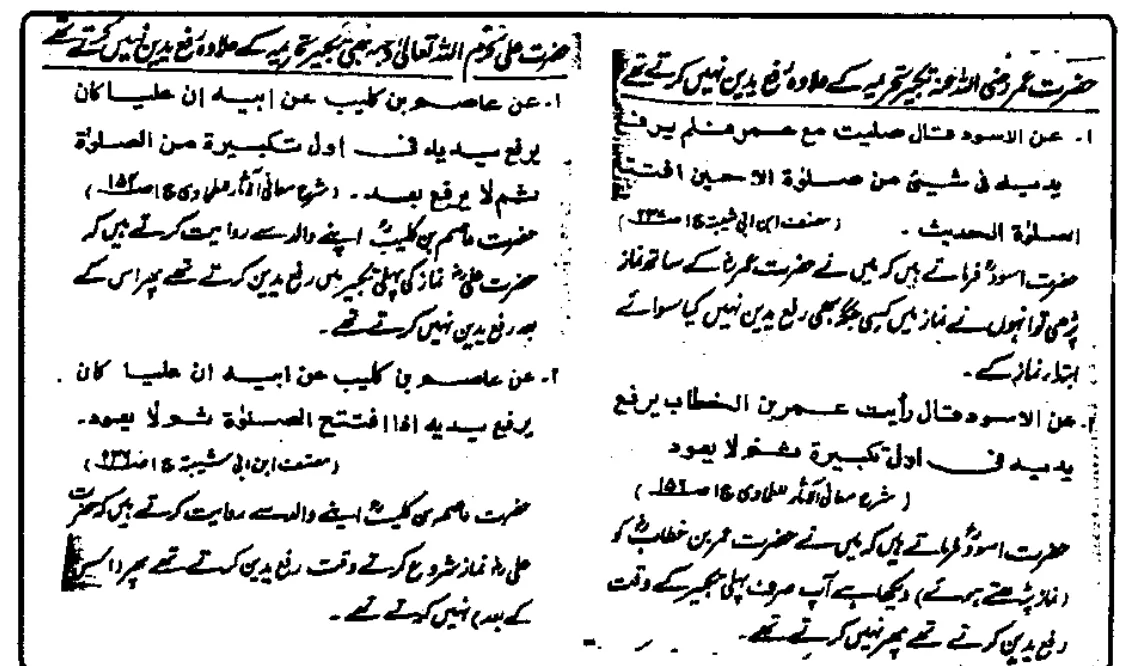 حضرت عمر رضی اللہ عنہ تکبیر تحریمہ کے علاوہ رفع یدین نہیں کرتے تھے
۱۔ عن الاسود قال صلیت مع عمر فلم یرفع
یدیه فی شیئی من صلوٰة الا حین افتتح
الصلوٰة الحدیث ۔ (مصنف ابن ابی شیبة ج۱ ص۲۳۷)
حضرت اسودؒ فرماتے ہیں کہ میں نے حضرت عمرؓ کے ساتھ نماز
پڑھی تو انہوں نے نماز میں کسی جگہ بھی رفع یدین نہیں کیا سوائے
ابتداء نماز کے۔
۲۔ عن الاسود قال رأیت عمر بن الخطاب یرفع
یدیه فی اول تکبیرة ثم لا یعود
(شرح معانی الآثار للطحاوی ج۱ ص۱۵۶)
حضرت اسودؒ فرماتے ہیں کہ میں نے حضرت عمر بن خطابؓ کو
(نماز پڑھتے ہوئے) دیکھا ہے آپ صرف پہلی تکبیر کے وقت
رفع یدین کرتے تھے پھر نہیں کرتے تھے۔
حضرت علی کرم اللہ تعالیٰ وجہہ بھی تکبیر تحریمہ کے علاوہ رفع یدین نہیں کرتے تھے
۱۔ عن عاصم بن کلیب عن ابیه ان علیا کان
یرفع یدیه فی اول تکبیرة من الصلوٰة
ثم لا یرفع بعد ۔ (شرح معانی الآثار للطحاوی ج۱ ص۱۵۴)
حضرت عاصم بن کلیبؒ اپنے والد سے روایت کرتے ہیں کہ
حضرت علیؓ نماز کی پہلی تکبیر میں رفع یدین کرتے تھے پھر اس کے
بعد رفع یدین نہیں کرتے تھے۔
۲۔ عن عاصم بن کلیب عن ابیه ان علیا کان
یرفع یدیه اذا افتتح الصلوٰة ثم لا یعود۔
(مصنف ابن ابی شیبة ج۱ ص۲۳۶)
حضرت عاصم بن کلیبؒ اپنے والد سے روایت کرتے ہیں کہ حضرت
علیؓ نماز شروع کرتے وقت رفع یدین کرتے تھے پھر (اس
کے بعد) نہیں کرتے تھے۔